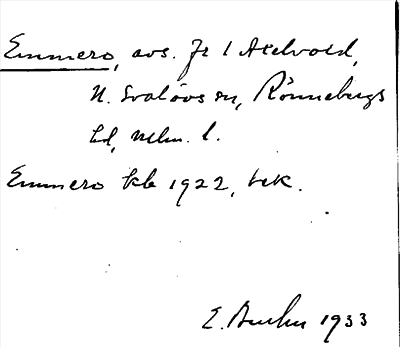 Emmero, avs. fr l Axelvold,
N. Svalövs sn, Rönnebergs
hd, Mlm. l.
Emmero kb 1922, tek.
E. 1933